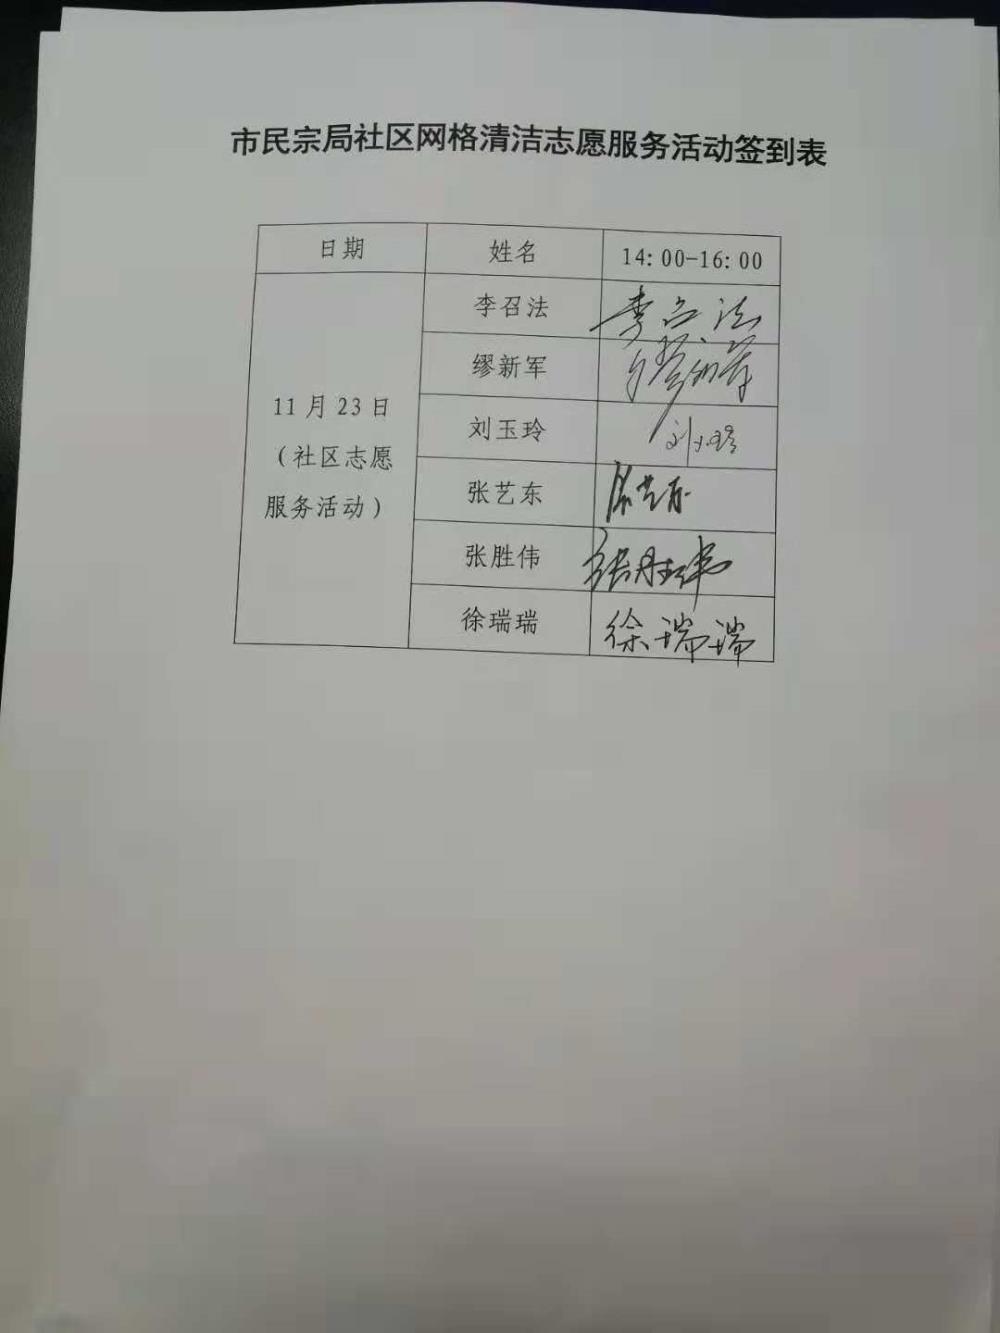 市民宗局社区网格清洁志愿服务活动签到表
日期 姓名 14:00-16:00
11月23日
（社区志愿
服务活动）
李召法 李召法
缪新军 缪新军
刘玉玲 刘玉玲
张艺东 张艺东
张胜伟 张胜伟
徐瑞瑞 徐瑞瑞